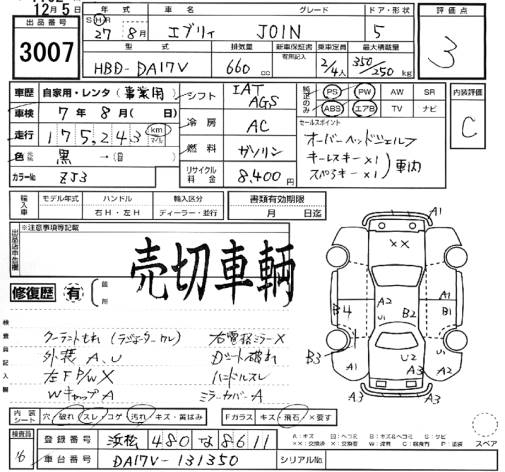 12月5日
出品番号
3007
年式 車名 グレード ドア・形状
S H R 27 8月 エブリィ JOIN 5
型式 排気量 新車保証書 有無記入 乗車定員 最大積載量
HBD-DA17V 660 cc 2/4人 350/250 kg
評価点
3
車歴 自家用・レンタ(事業用)
車検 7年8月( 日)
走行 175,243 km マイル
色 黒 →(
カラーNo. ZJ3
シフト IAT AGS
冷房 AC
燃料 ガソリン
リサイクル料金 8,400円
純正のみ PS PW AW SR
ABS エアB TV ナビ
セールスポイント
オーバーヘッドシェルフ
キーレスキー×1
スペアキー×1 車内
内装評価
C
輸入車 モデル年式 ハンドル 輸入区分 書類有効期限
右H・左H ディーラー・並行 月 日迄
※注意事項等記載
売切車輌
修復歴 有 箇所
検査員記入欄
クーラントもれ (ラジエター
外装A、U
左FP/WX
WキャップA
右電格ミラーX
Dシート破れ
ハンドルスレ
ミラーカバーA
A1
××
A1 A1
B4 A2 B2 B1
U1 U1
B3
A2 U2 A1
A3 A3
内装シート 穴 破れ スレ コゲ 汚れ キズ・黄ばみ Fガラス キズ 飛石 ×要す
スペア
検査員 16
登録番号 浜松 480 な 8611
車台番号 DA17V-131350 シリアルNo.